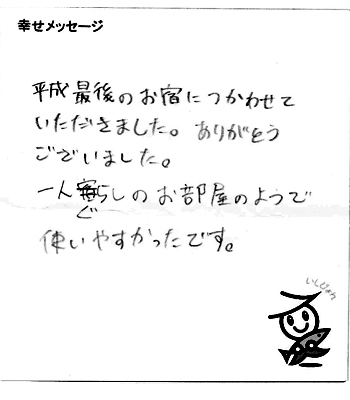 幸せメッセージ
平成最後のお宿につかわせて
いただきました。ありがとう
ございました。
一人暮らしのお部屋のようで
ぐ
使いやすかったです。